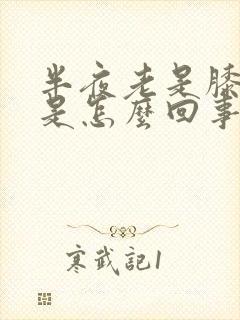 半夜老是膝
是怎麼回事
寒武記1